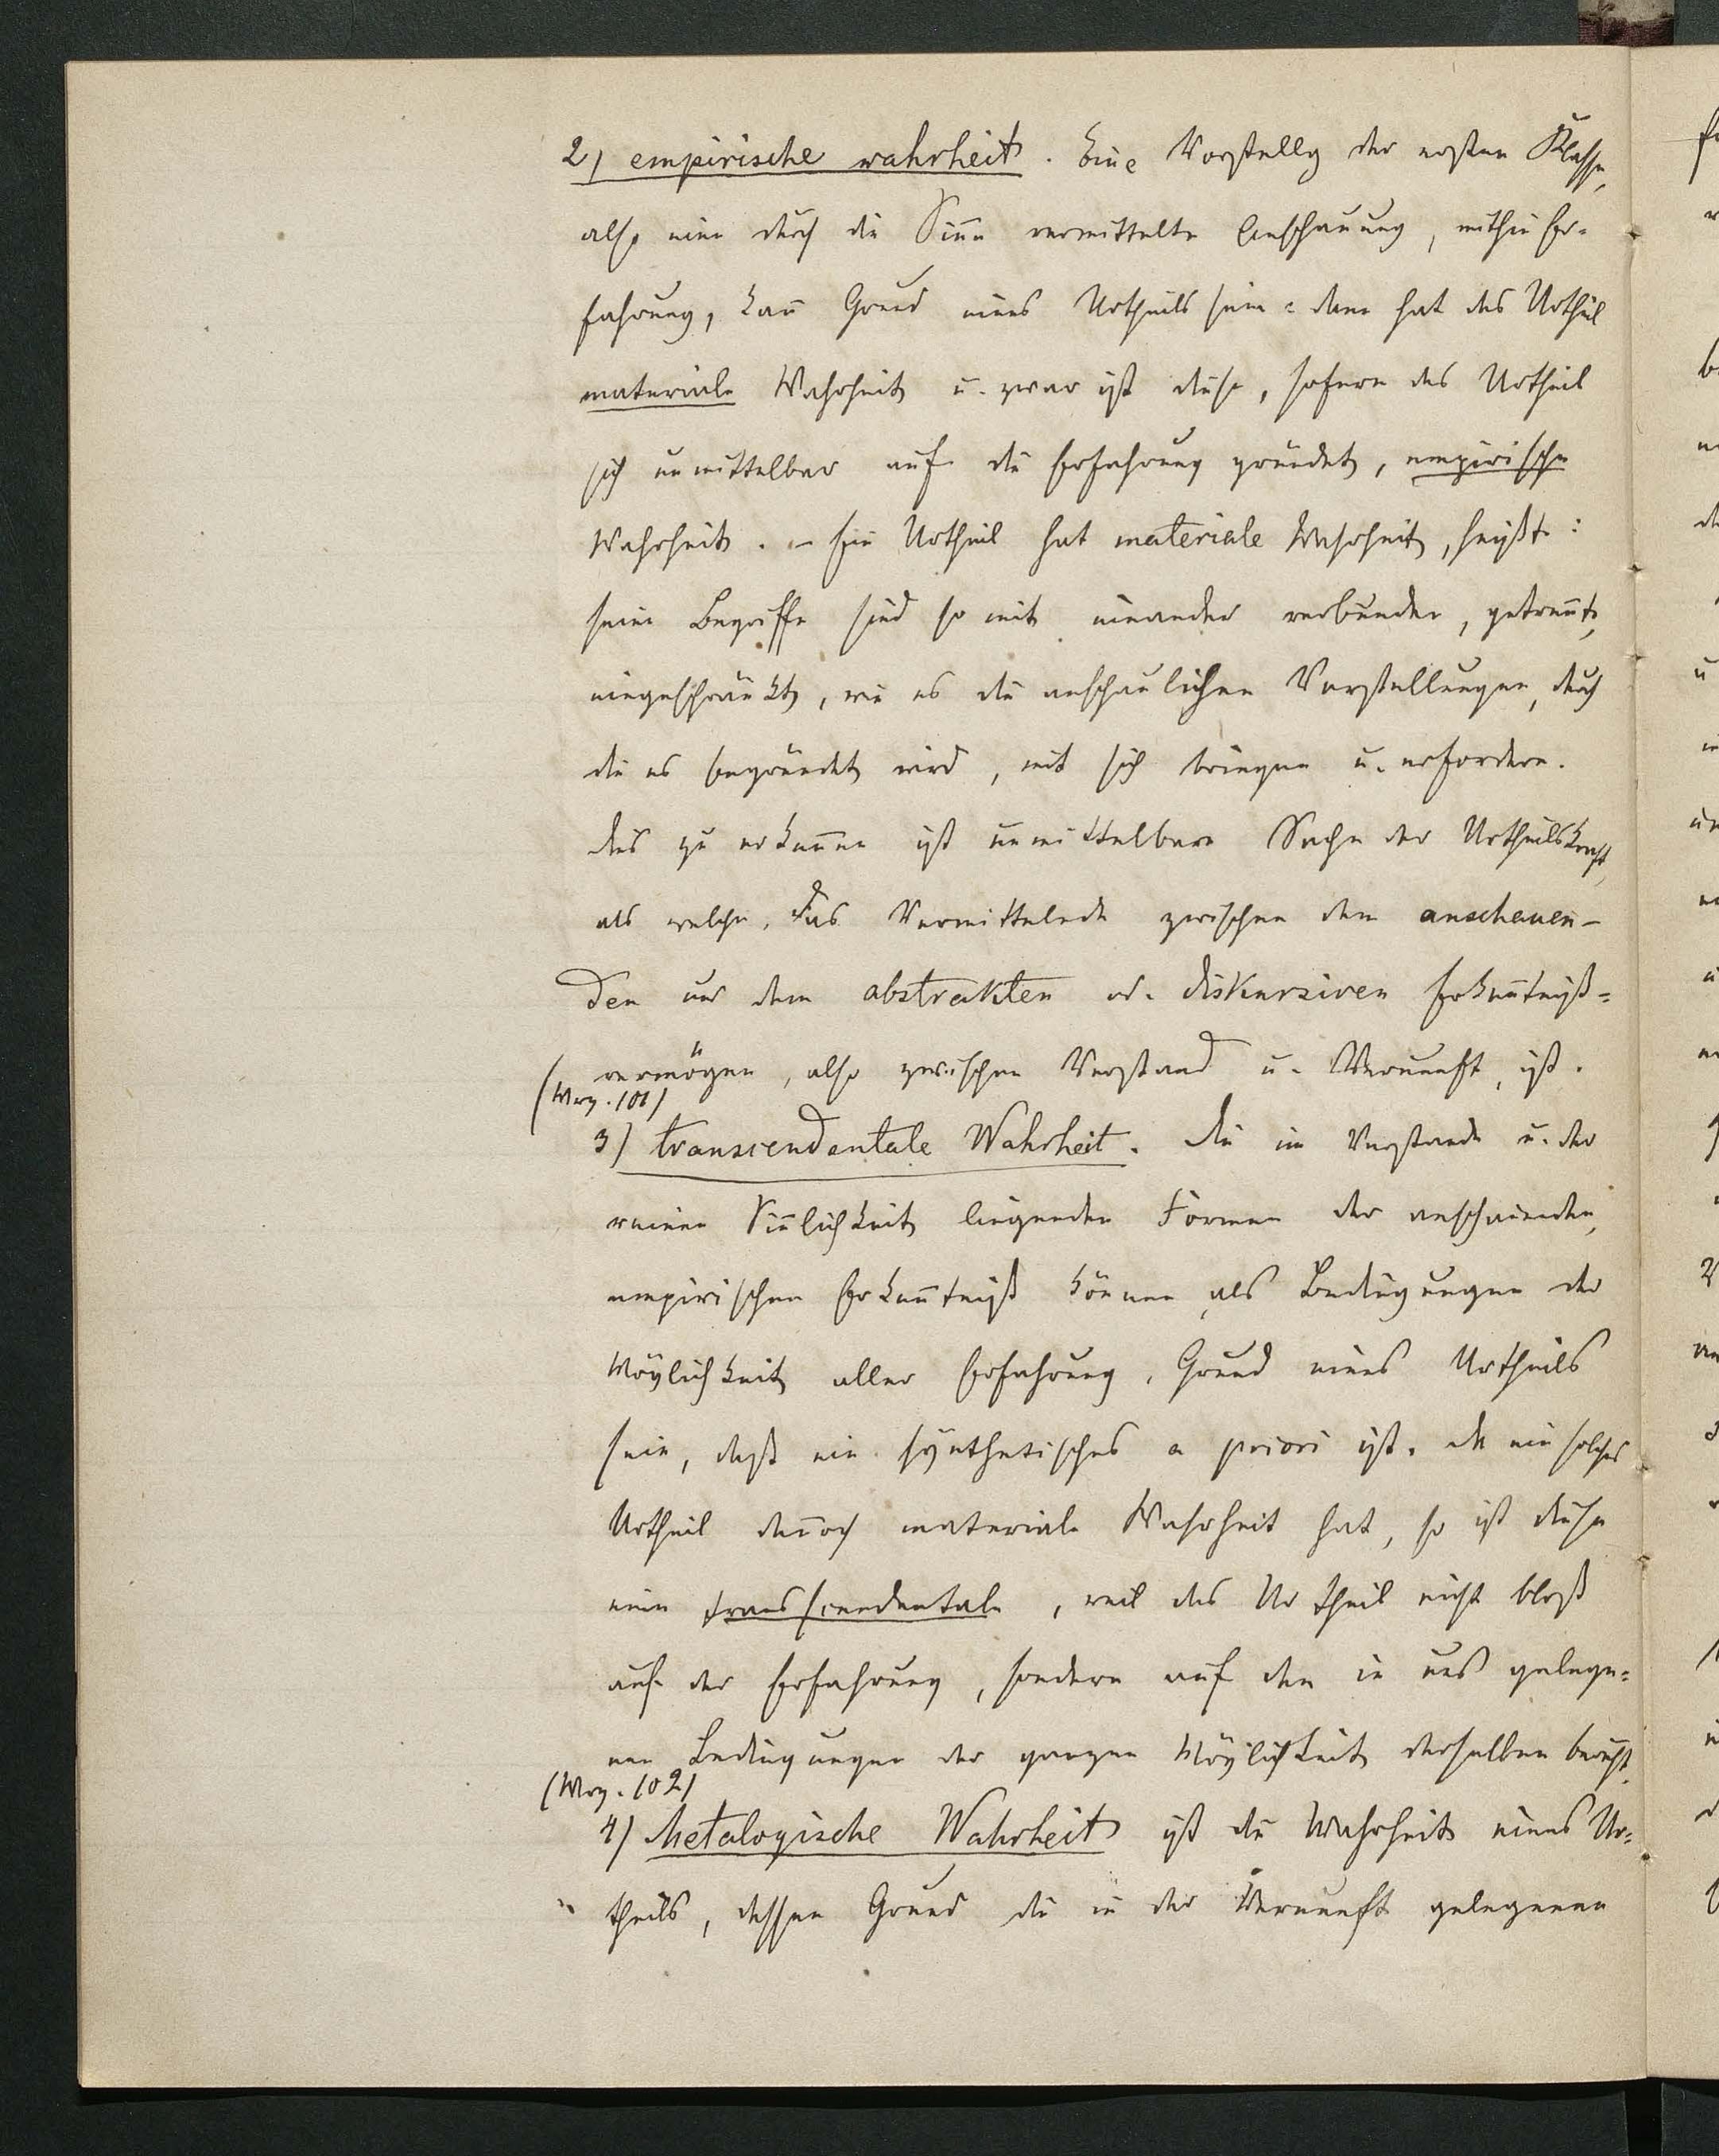 2) empirische Wahrheit. Eine Vorstellg der ersten Klasse,
also eine durch die Sinne vermittelte Anschauung, mithin Er-
fahrung, kann Grund eines Urtheils sein: dann hat das Urtheil
materiale Wahrheit u. zwar ist diese, sofern das Urtheil
sich unmittelbar auf die Erfahrung gründet, empirische
Wahrheit. – Ein Urtheil hat materiale Wahrheit, heißt:
seine Begriffe sind so mit einander verbunden, getrennt,
eingeschränkt, wie es die anschaulichen Vorstellungen, durch
die es begründet wird, mit sich bringen u. erfordern.
Dies zu erkennen ist unmittelbare Sache der Urtheilskraft,
als welche, das Vermittelnde zwischen dem anschauen-
den und dem abstrakten od. diskursiven Erkenntniß-
vermögen, also zwischen Verstand u. Vernunft, ist.
(Wrz. 101)
3) transcendentale Wahrheit. Die im Verstande u. der
reinen Sinnlichkeit liegenden Formen der anschauenden,
empirischen Erkenntniß können, als Bedingungen der
Möglichkeit aller Erfahrung, Grund eines Urtheils
sein, daß ein synthetisches a priori ist. Da ein solches
Urtheil dennoch materiale Wahrheit hat, so ist diese
eine transscendentale, weil das Urtheil nicht bloß
auf der Erfahrung, sondern auf den in uns gelege-
nen Bedingungen der ganzen Möglichkeit derselben beruht.
(Wrz. 102)
4) Metalogische Wahrheit ist die Wahrheit eines Ur-
theils, dessen Grund die in der Vernunft gelegenen